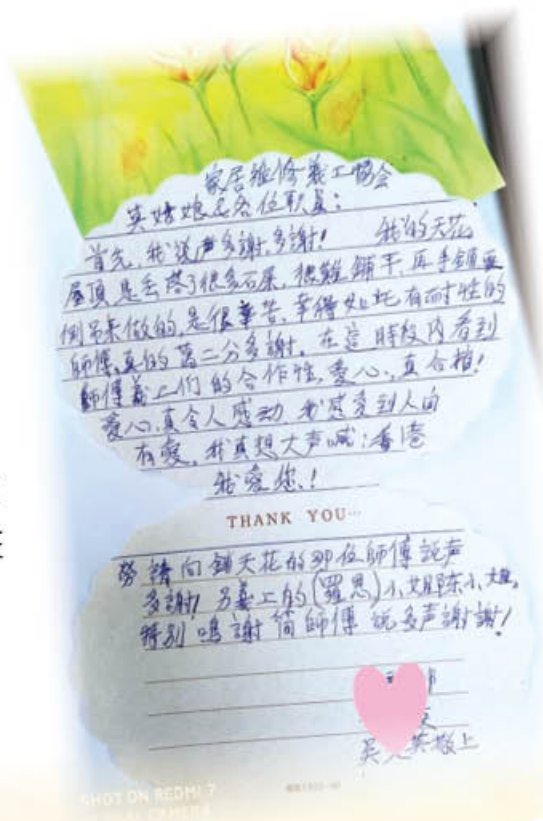 家居維修義工協会
英姑娘及各位职員:
首先,我说声多謝,多謝! 我的天花
屋頂是丟落了很多石屎,很難鋪平,再手鋪
倒吊來做的,是很辛苦,幸得 有耐性的
師傅,真的萬二分多謝,在這時段内看到
師傅義工们的合作性,愛心,真合拍!
愛心,真令人感动,我感受到人间
有愛,我真想大声喊:香港
我愛您!
THANK YOU…
勞請向鋪天花的那位師傅說声
多謝! 另義工的(羅恩)小姐陈小姐,
特别鳴謝简師傅 說多声謝謝!
吳 英敬上
SHOT ON REDMI 7